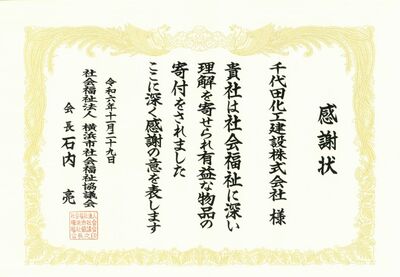 感謝状
千代田化工建設株式会社 様
貴社は社会福祉に深い
理解を寄せられ有益な物品の
寄付をされました
ここに深く感謝の意を表します
令和六年十一月二十九日
社会福祉法人 横浜市社会福祉協議会
会長 石内 亮